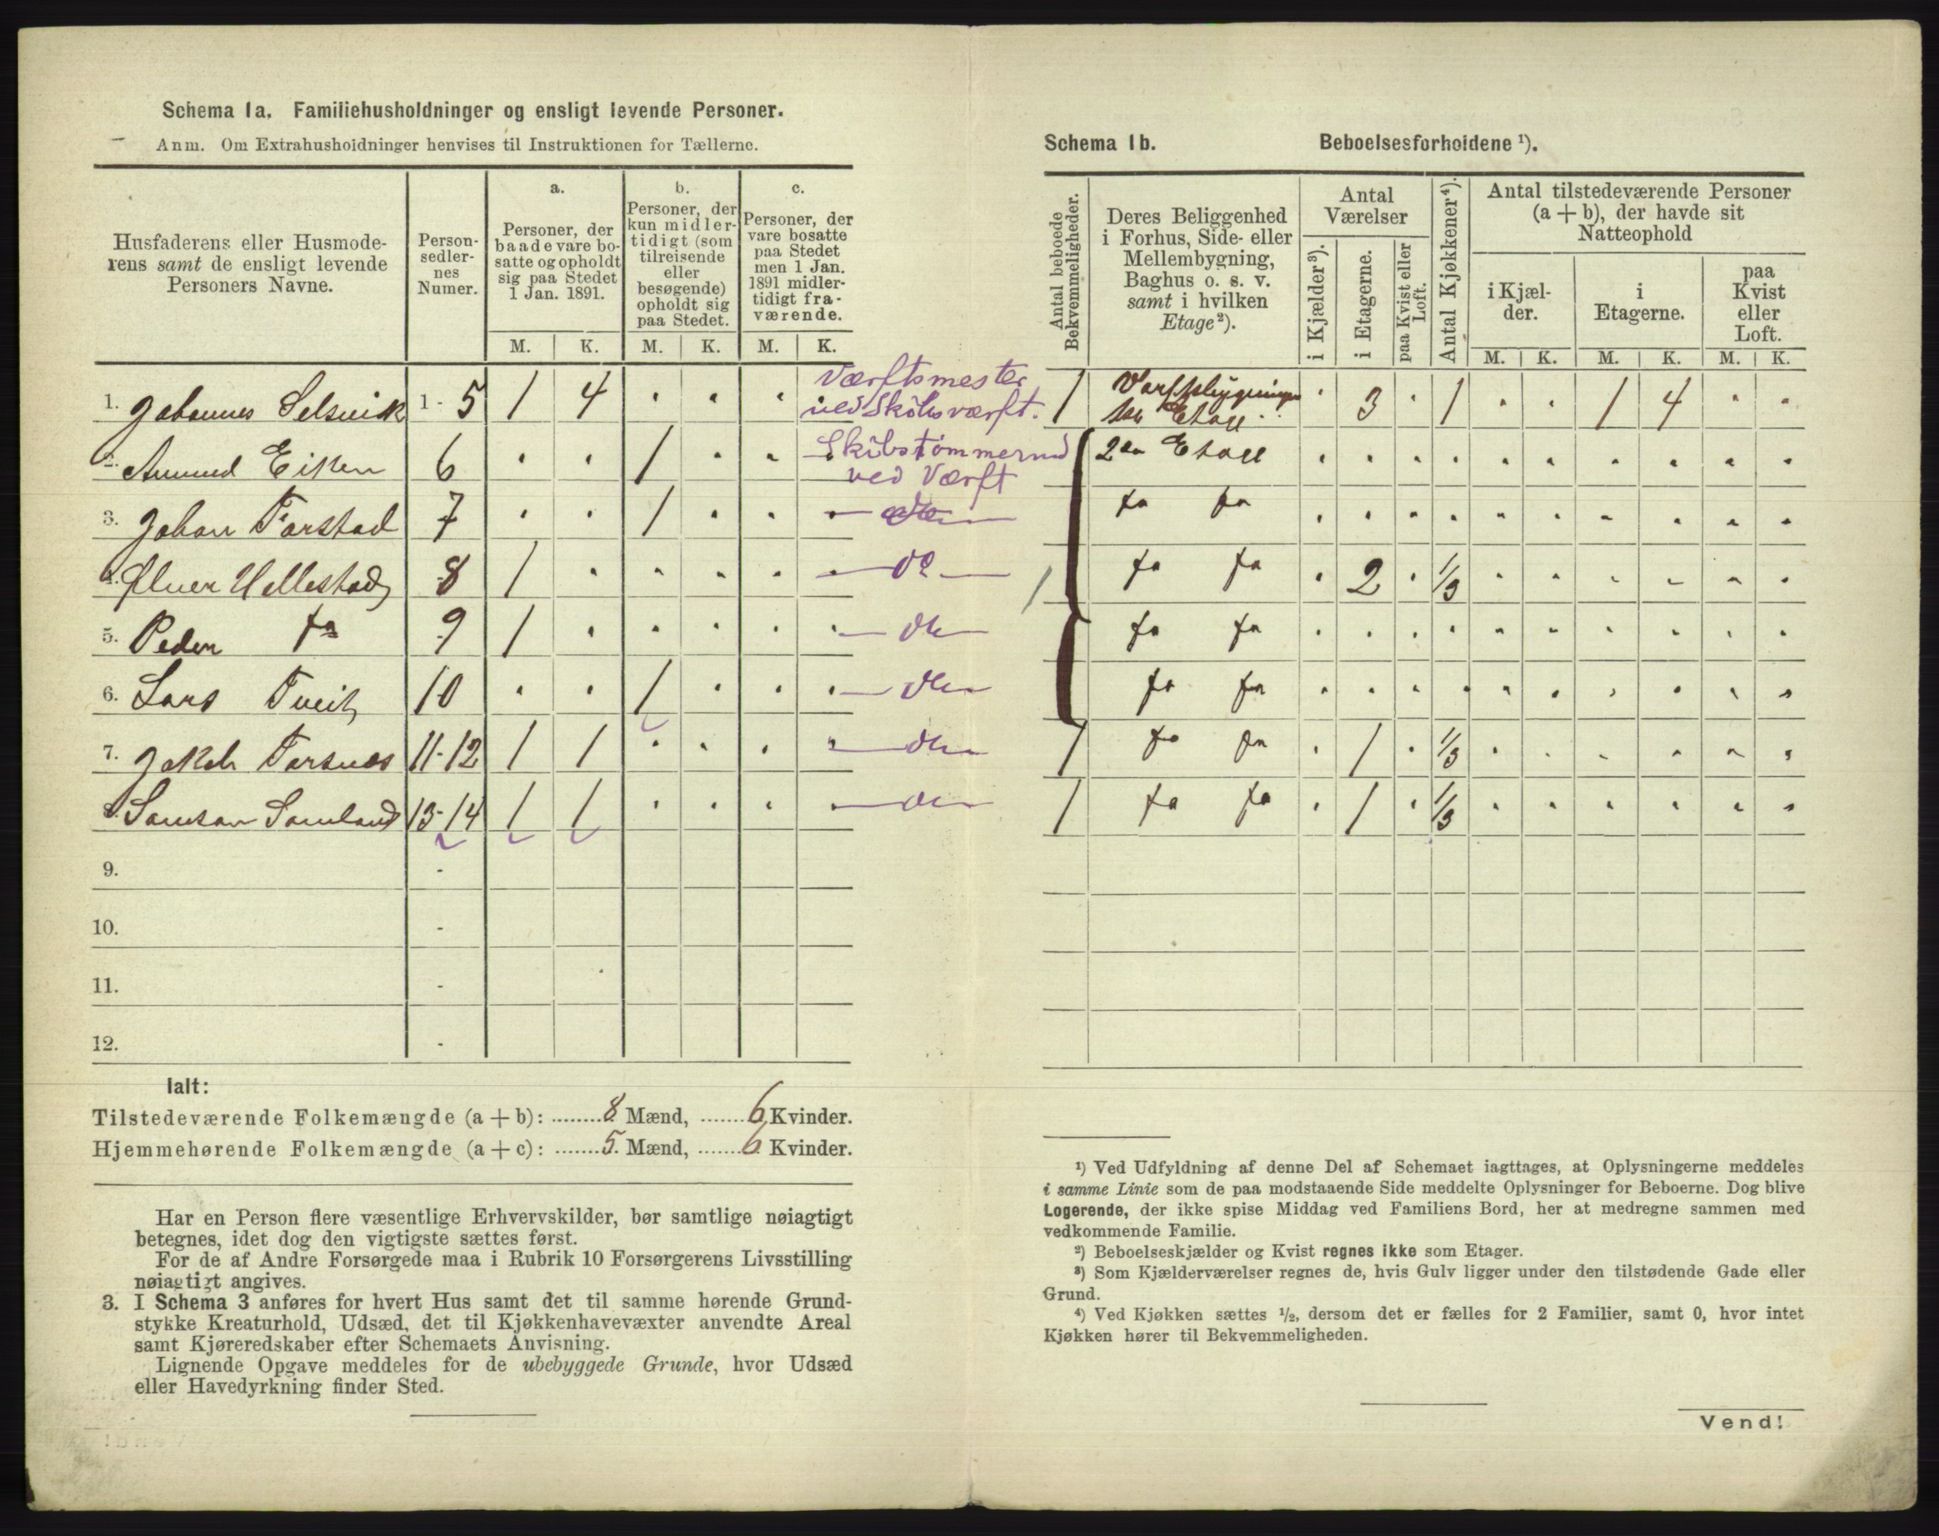 Schema 1a. Familiehusholdninger og ensligt levende Personer.
Anm. Om Extrahusholdninger henvises til Instruktionen for Tællerne.
Husfaderens eller Husmoderens samt de ensligt levende Personers Navne.
Personsedlernes Numer.
a.
Personer, der baade vare bosatte og opholdt sig paa Stedet 1 Jan. 1891.
b.
Personer, der kun midlertidigt (som tilreisende eller besøgende) opholdt sig paa Stedet.
c.
Personer, der vare bosatte paa Stedet men 1 Jan. 1891 midlertidigt fraværende.
M. K. M. K. M. K.
1. Johannes Selsvik 1-5 1 4 Værftsmester ved Sköttsværft.
2. Amund Eiken 6 1 Skibstømmermd ved Værft
3. Johan Forstad 7 1
4. Ølver Hellestad 8 1
5. Peder fa 9 1
6. Lars Tveit 10 1
7. Jakob Torsnes 11-12 1 1
8. Samson Samland 13-14 1 1
9. -
10. -
11. -
12. -
Ialt:
Tilstedeværende Folkemængde (a + b): 8 Mænd, 6 Kvinder.
Hjemmehørende Folkemængde (a + c): 5 Mænd, 6 Kvinder.
Har en Person flere væsentlige Erhvervskilder, bør samtlige nøiagtigt
betegnes, idet dog den vigtigste sættes først.
For de af Andre Forsørgede maa i Rubrik 10 Forsørgerens Livsstilling
nøiagtigt angives.
3. I Schema 3 anføres for hvert Hus samt det til samme hørende Grund-
stykke Kreaturhold, Udsæd, det til Kjøkkenhavevæxter anvendte Areal
samt Kjøreredskaber efter Schemaets Anvisning.
Lignende Opgave meddeles for de ubebyggede Grunde, hvor Udsæd
eller Havedyrkning finder Sted.
Schema 1b. Beboelsesforholdene ¹).
Antal beboede Bekvemmeligheder.
Deres Beliggenhed i Forhus, Side- eller Mellembygning, Baghus o. s. v. samt i hvilken Etage²).
Antal Værelser
i Kjælder³).
i Etagerne.
paa Kvist eller Loft.
Antal Kjøkkener⁴).
Antal tilstedeværende Personer (a + b), der havde sit Natteophold
i Kjælder.
i Etagerne.
paa Kvist eller Loft.
M. K. M. K. M. K.
1 3 1 1 4
2den Etage
fa fa
1 fa fa 2 1/3
fa fa
fa fa
1 fa fa 1 1/3
1 fa fa 1 1/3
¹) Ved Udfyldning af denne Del af Schemaet iagttages, at Oplysningerne meddeles
i samme Linie som de paa modstaaende Side meddelte Oplysninger for Beboerne. Dog blive
Logerende, der ikke spise Middag ved Familiens Bord, her at medregne sammen med
vedkommende Familie.
²) Beboelseskjælder og Kvist regnes ikke som Etager.
³) Som Kjælderværelser regnes de, hvis Gulv ligger under den tilstødende Gade eller
Grund.
⁴) Ved Kjøkken sættes ½, dersom det er fælles for 2 Familier, samt 0, hvor intet
Kjøkken hører til Bekvemmeligheden.
Vend!